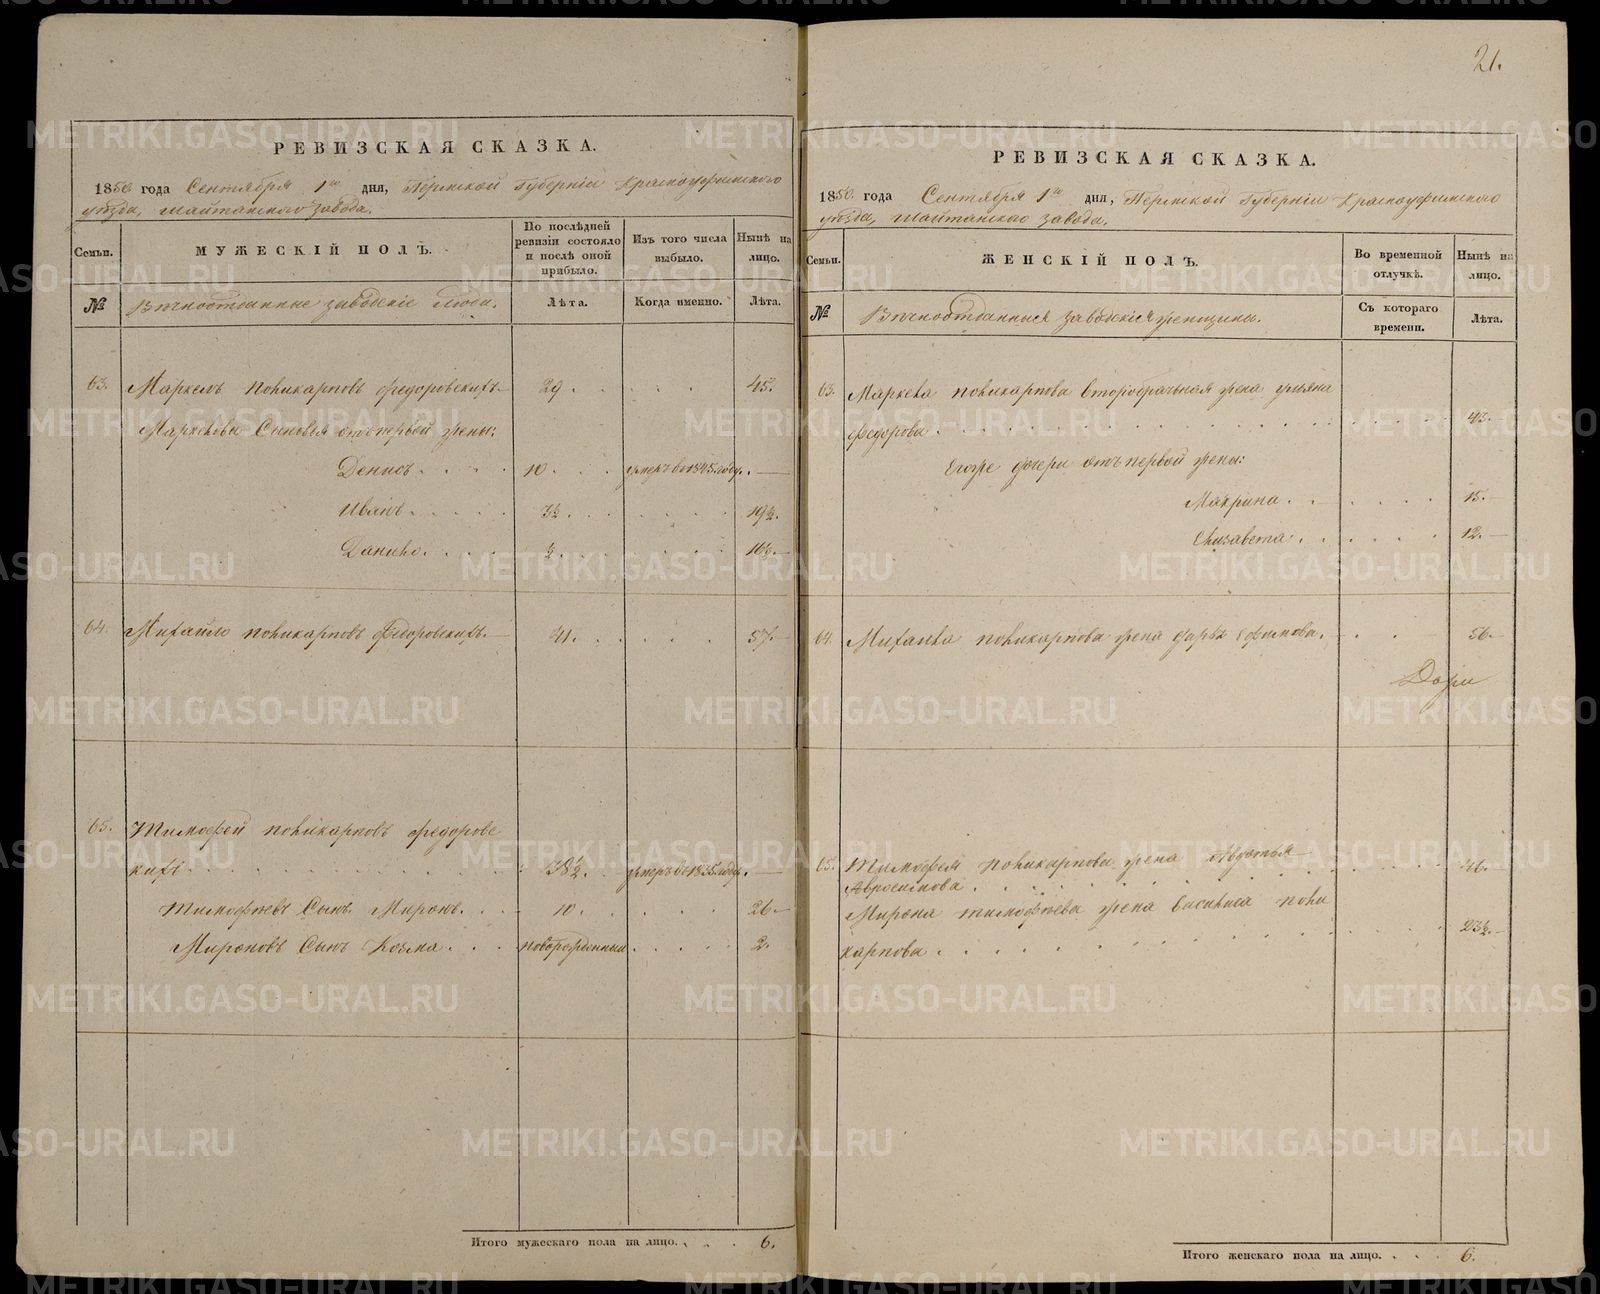 21.
РЕВИЗСКАЯ СКАЗКА.
1850 года Сентября 1го дня, Пермской Губерніи Красноуфимскаго
уѣзда, Шайтанскаго завода.
Семьи.
МУЖЕСКІЙ ПОЛЪ.
По послѣдней ревизіи состояло и послѣ оной прибыло.
Изъ того числа выбыло.
Нынѣ на лицо.
№
Вѣчноотданные заводскіе люди.
Лѣта.
Когда именно.
Лѣта.
63. Маркелъ Поликарповъ Федоровскихъ 29 45.
Маркелова Сыновья отъ первой жены:
Денисъ 10 умеръ въ 1845 году.
Иванъ 3½ 19½.
Данило ½ 16½.
64. Михайло Поликарповъ Федоровскихъ 41. 57.
65. Тимофей Поликарповъ Федоровс
кихъ 38½ умеръ въ 1835 году.
Тимофѣевъ Сынъ Миронъ 10. 26.
Мироновъ Сынъ Козма новорожденный 2.
Итого мужескаго пола на лицо. 6.
РЕВИЗСКАЯ СКАЗКА.
1850. года Сентября 1го дня, Пермской Губерніи Красноуфимскаго
уѣзда, Шайтанскаго завода.
Семьи.
ЖЕНСКІЙ ПОЛЪ.
Во временной отлучкѣ.
Нынѣ на лицо.
№
Вѣчноотданныя заводскія женщины.
Съ котораго времени.
Лѣта.
63. Маркела Поликарпова второбрачная жена Ульяна
Федорова 43.
Егоже дочери отъ первой жены:
Макрина 15.
Елизавета 12.
64. Михайла Поликарпова жена Дарья Ефимова. 56.
65. Тимофея Поликарпова жена Авдотья
Авросимова 46.
Мирона Тимофѣева жена Василиса Поли
карпова 23½.
Итого женскаго пола на лицо. 6.